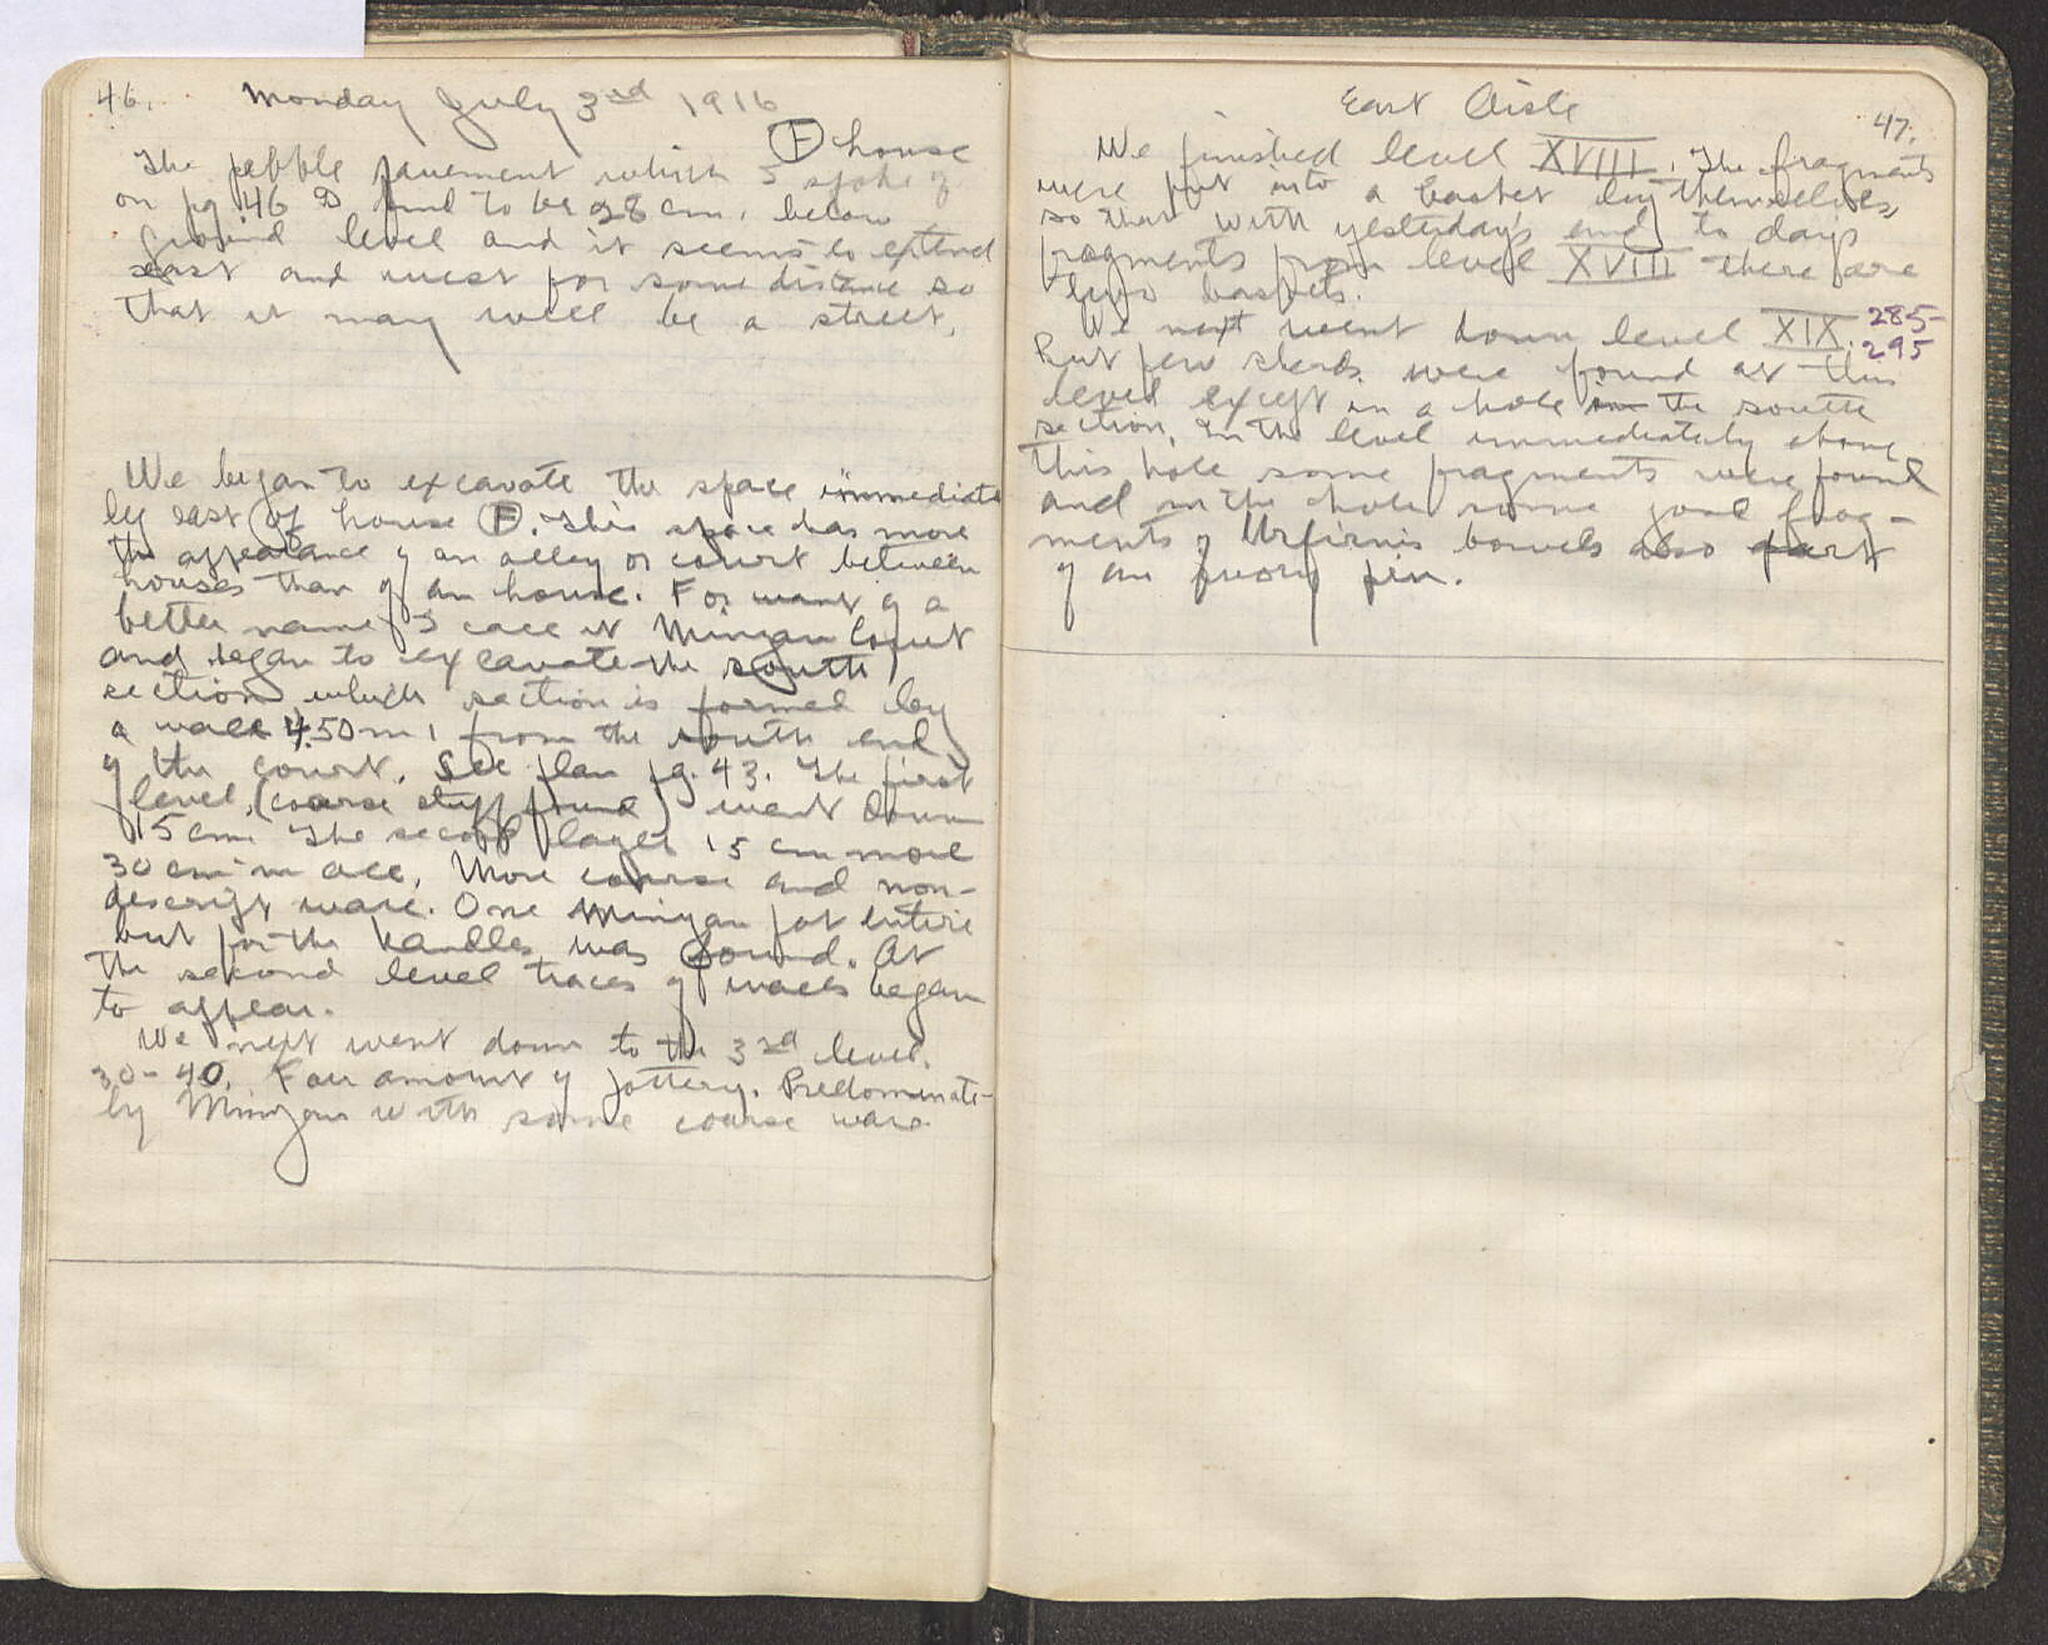 46. Monday July 3rd 1916
F house
The pebble pavement which I spoke of
on pg 46 I find to be 28 cm. below
ground level and it seems to extend
east and west for some distance so
that it may well be a street.
We began to excavate the space immediate
ly east of house F. This space has more
the appearance of an alley or court between
houses than of an house. For want of a
better name I call it Minyan Court
and began to excavate the south
section which section is formed by
a wall 4.50 m. from the south end
of the court. See plan pg. 43. The first
level, (coarse stuff found) went down
15 cm. The second layer 15 cm more
30 cm in all. More coarse and non-
descript ware. One Minyan pot entire
but for the handles was found. At
the second level traces of walls began
to appear.
We next went down to the 3rd level.
30-40. Fair amount of pottery. Predominate-
ly Minyan with some coarse ware
East Aisle
47.
We finished level XVIII. The fragments
were put into a basket by themselves
so that with yesterday's and to days
fragments from level XVIII there are
two baskets.
We next went down level XIX. 285-
295
But few sherds were found at this
level except in a hole in the south
section. In the level immediately above
this hole some fragments were found
and in the hole some good frag-
ments of Urfirnis bowels also part
of an ivory pin.